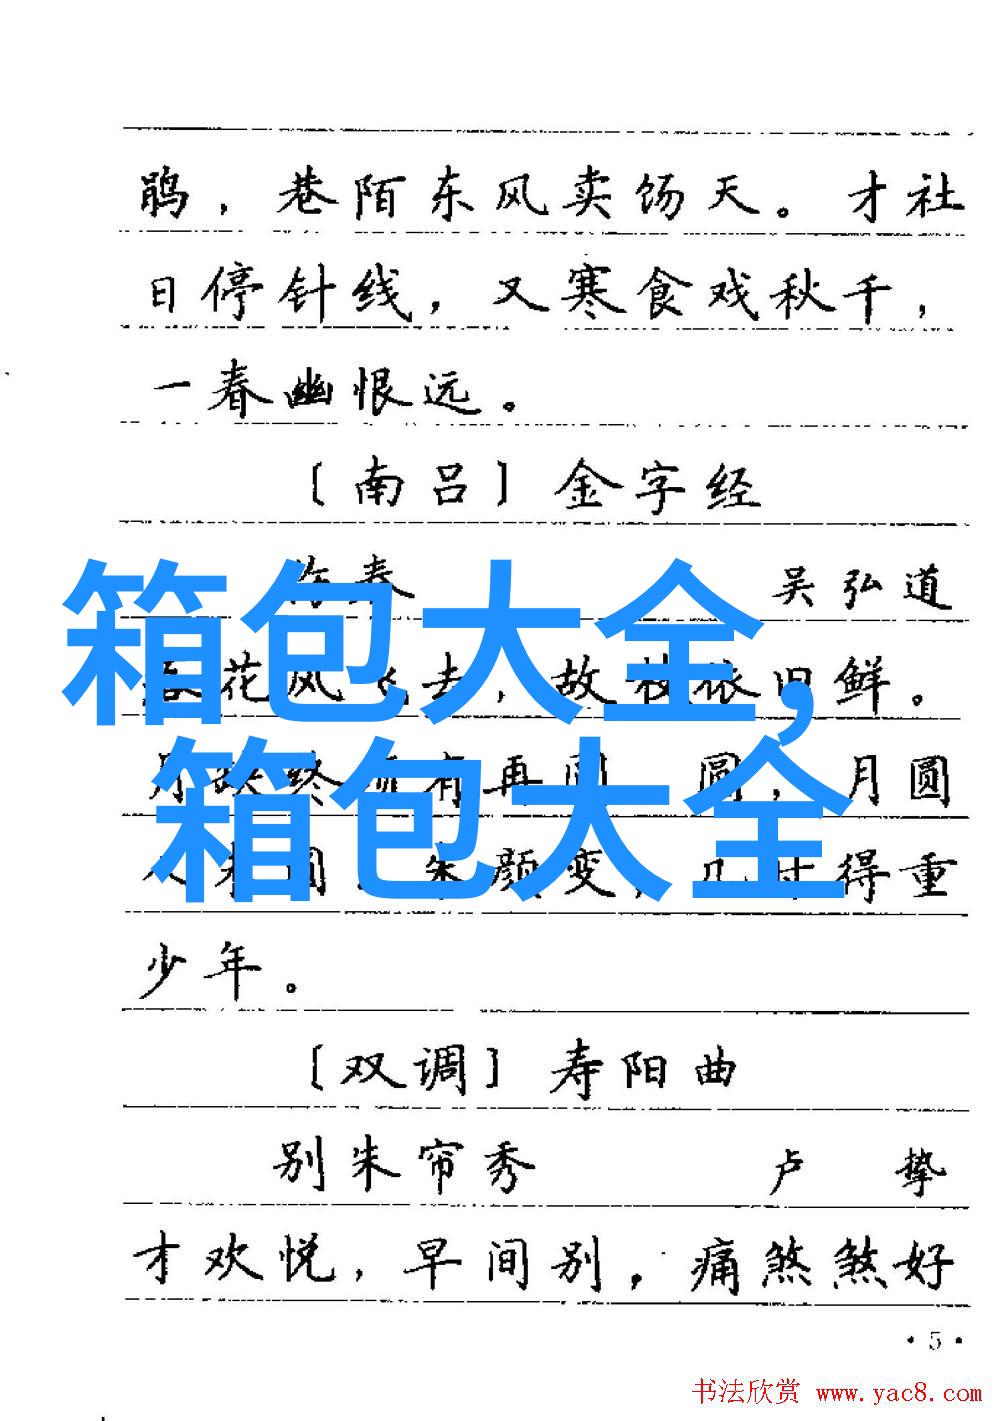 鹃，巷陌东风卖饧天。才社
日停针线，又寒食戏秋千，
一春幽恨远。
〔南吕〕金字经
春
吴弘道
箱包大全，
花风飞去，故枝依旧鲜。
月缺终须有再圆 圆，月圆
箱包大全
朱颜变，几时得重
少年。
〔双调〕寿阳曲
别朱帘秀
卢 挚
才欢悦，早间别，痛煞煞好
·5·
书法欣赏 www.yac8.com